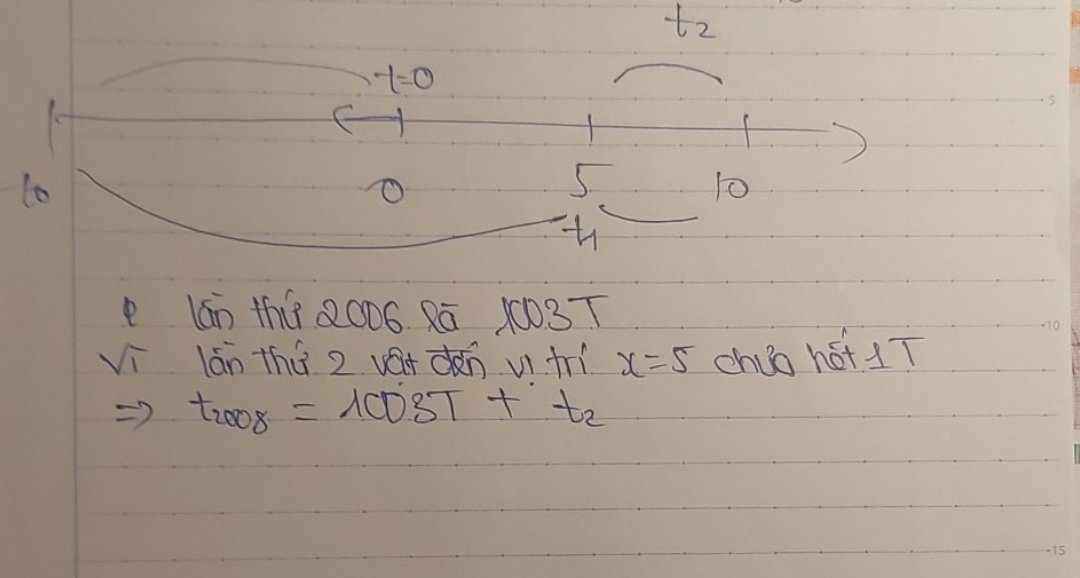 t₂
t=0
10
0
5
10
t₁
lần thứ 2006 là 1003T
Vì lần thứ 2 vật đến vị trí x=5 chưa hết 1T
=> t₂₀₀₈ = 1003T + t₂
5
10
15